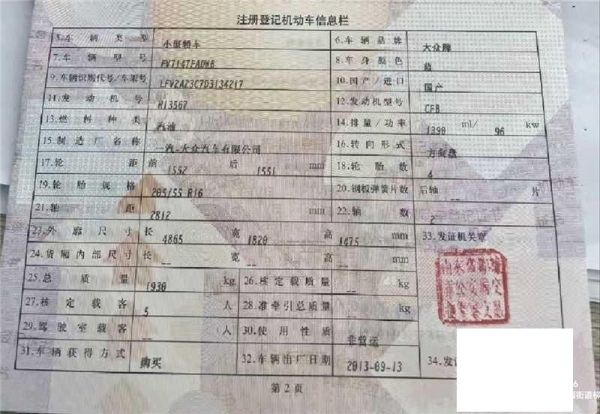 注册登记机动车信息栏
5.车辆类型 小型轿车 6.车辆品牌 大众牌
7.车辆型号 8.车身颜色
9.车辆识别代号/车架号 LFV2A23C7D3134217 10.国产/进口 国产
11.发动机号 H13567 12.发动机型号 CFB
13.燃料种类 汽油 14.排量/功率 1390 ml/ 96 kw
15.制造厂名称 一汽-大众汽车有限公司 16.转向形式 方向盘
17.轮距 前 1552 后 1551 mm 18.轮胎数 4
19.轮胎规格 205/55 R16 20.钢板弹簧片数 后轴 片
21.轴距 2812 mm 22.轴数 2
23.外廓尺寸 长 4865 宽 1820 高 1475 mm 33.发证机关章
24.货厢内部尺寸 长 宽 高 mm
25.总质量 1930 kg 26.核定载质量 -- kg
27.核定载客 5 人 28.准牵引总质量 -- kg
29.驾驶室载客 -- 人 30.使用性质 非营运
31.车辆获得方式 购买 32.车辆出厂日期 2013-09-13 34.发证
第2页